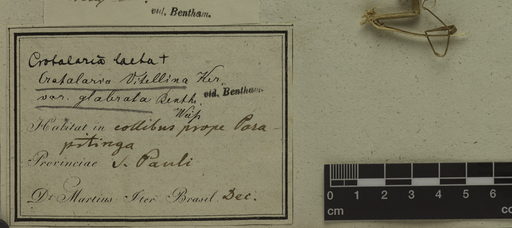 vid. Bentham.
Crotalaria laeta +
Crotalaria Vitellina Ker.
var. glabrata Benth. vid. Bentham.
Habitat in collibus prope Para-
pitinga
Provinciae S. Pauli
Dr Martius Iter Brasil. Dec.
0 1 2 3 4 5 6
cm